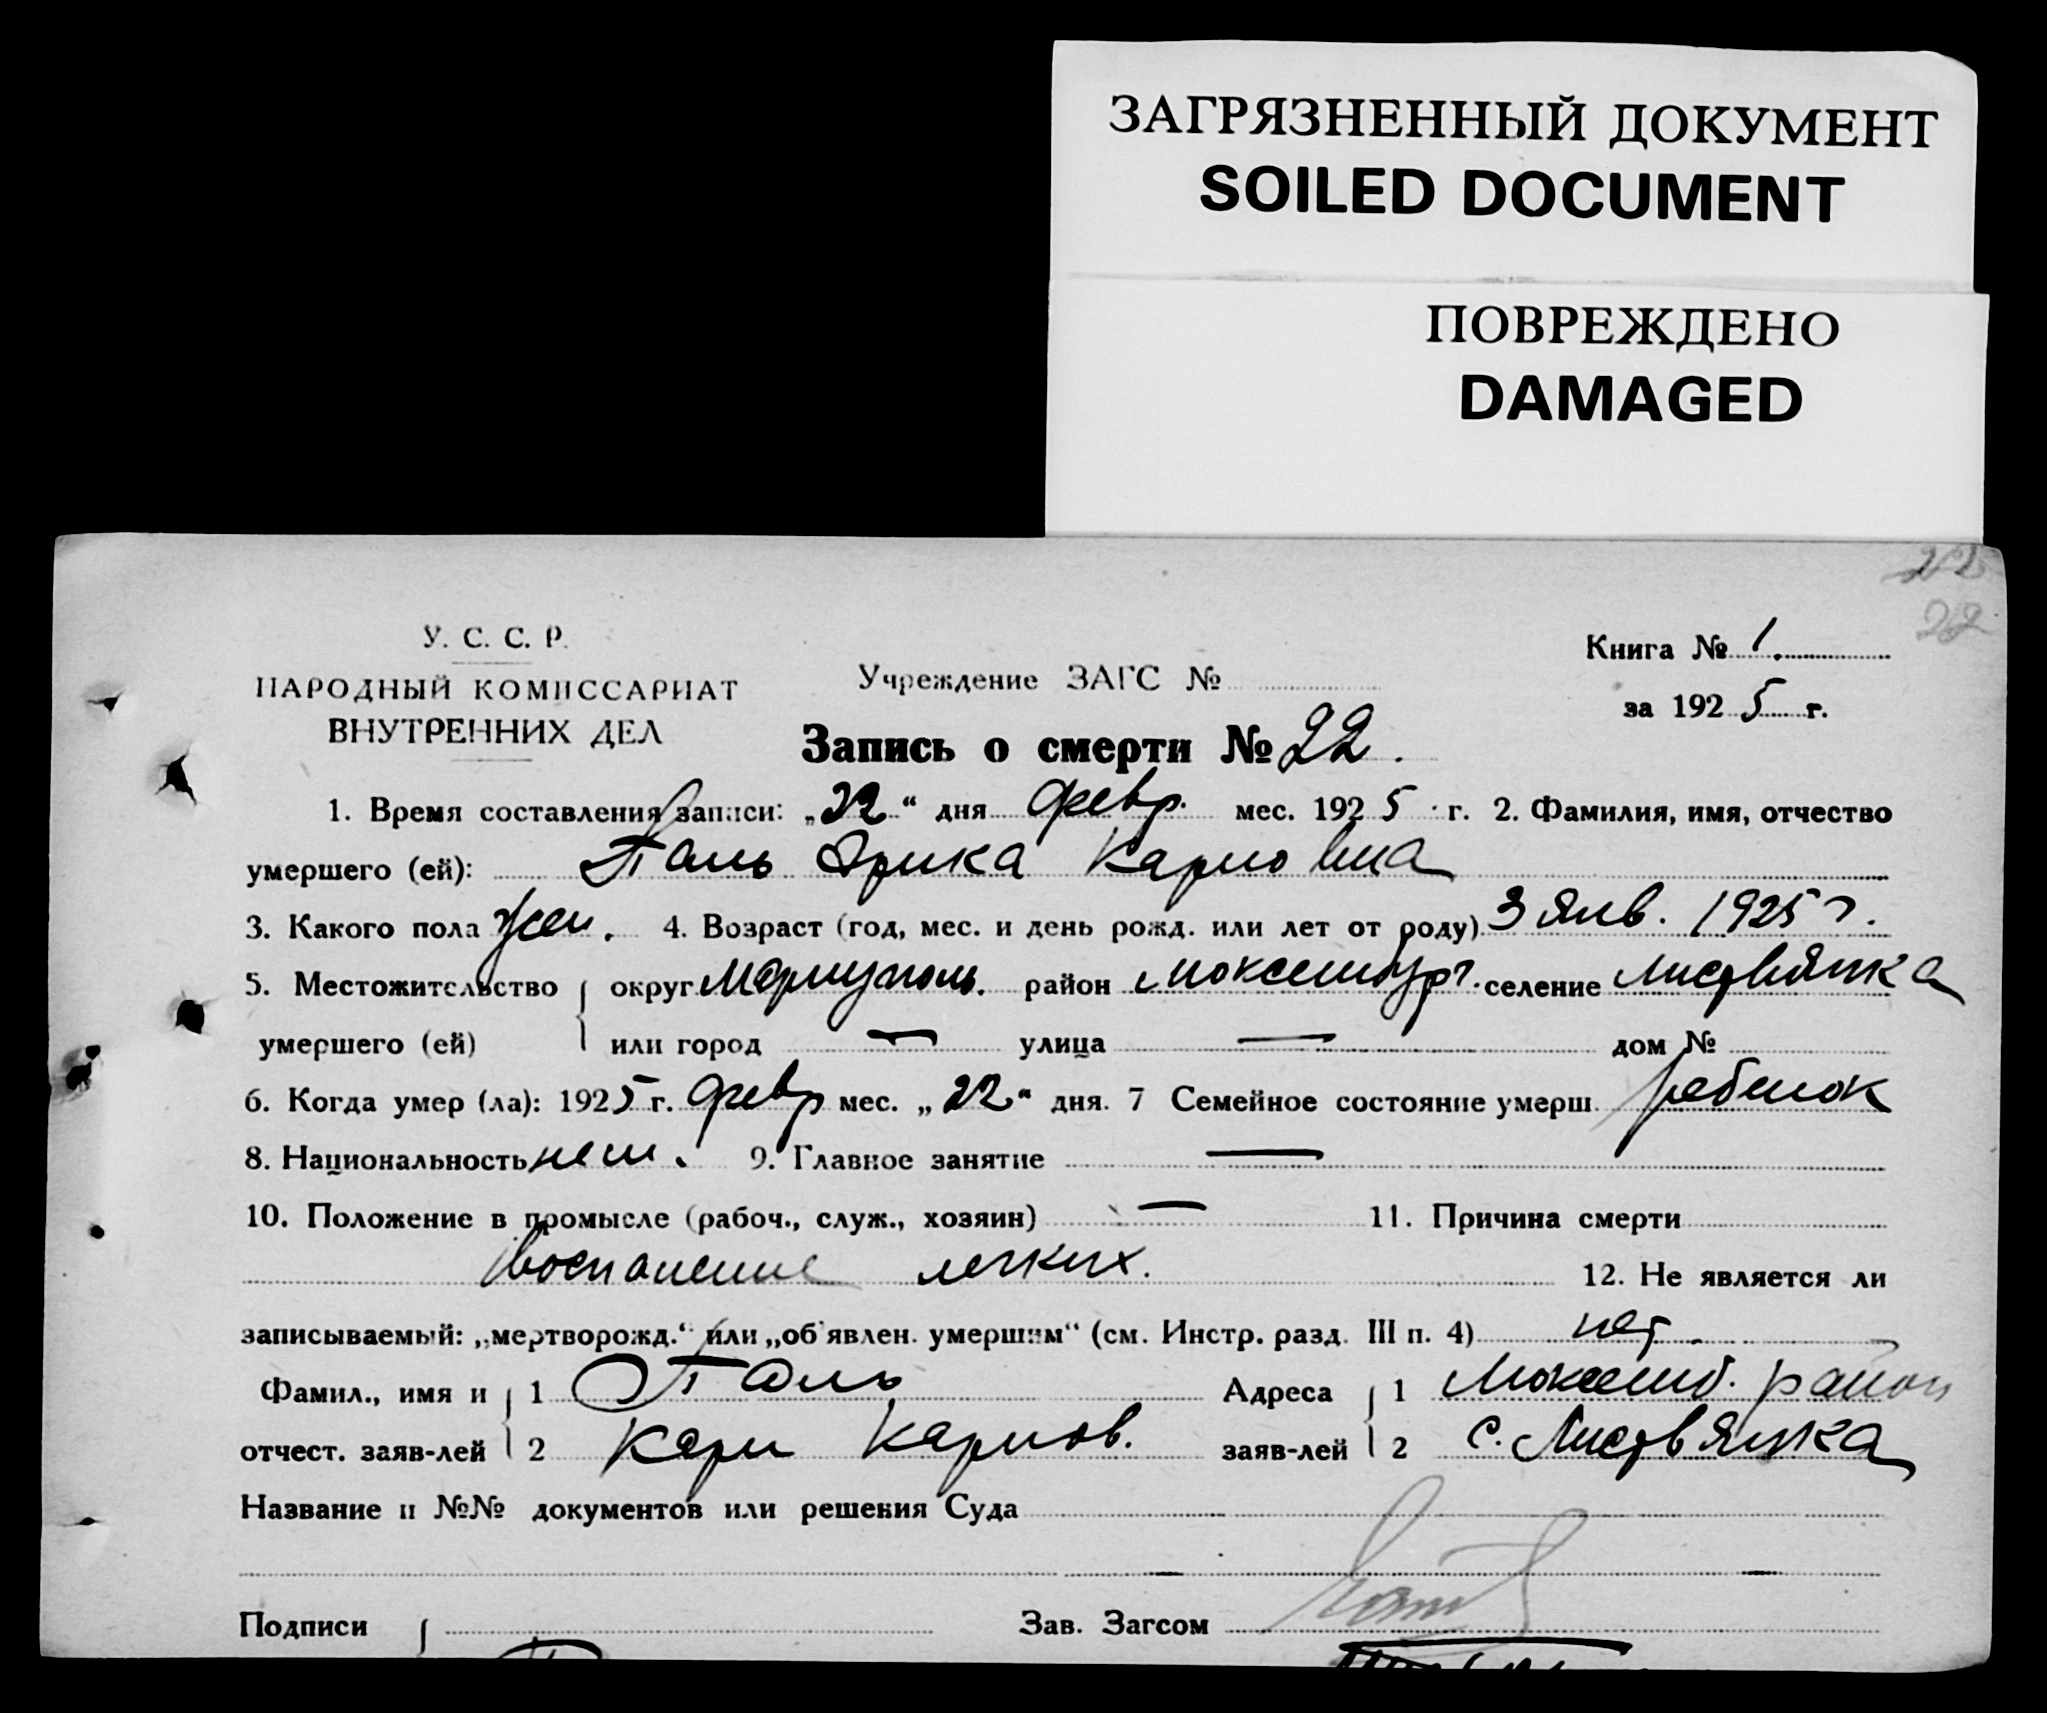 ЗАГРЯЗНЕННЫЙ ДОКУМЕНТ
SOILED DOCUMENT
ПОВРЕЖДЕНО
DAMAGED
22
22
У. С. С. Р.
НАРОДНЫЙ КОМИССАРИАТ
ВНУТРЕННИХ ДЕЛ
Учреждение ЗАГС №
Книга № 1.
за 1925 г.
Запись о смерти № 22.
1. Время составления записи: „22“ дня февр. мес. 1925 г. 2. Фамилия, имя, отчество
умершего (ей): Паль Эрика Карловна
3. Какого пола жен. 4. Возраст (год, мес. и день рожд. или лет от роду) 3 янв. 1925 г.
5. Местожительство округ Мариуполь. район Люксембург. селение Листвянка
умершего (ей) или город — улица — дом №
6. Когда умер (ла): 1925 г. февр мес. „22“ дня. 7 Семейное состояние умерш. ребенок
8. Национальность нем. 9. Главное занятие —
10. Положение в промысле (рабоч., служ., хозяин) — 11. Причина смерти
Воспаление легких. 12. Не является ли
записываемый: „мертворожд.“ или „об'явлен. умершим“ (см. Инстр. разд. III п. 4) нет.
Фамил., имя и 1 Паль Адреса 1 Люксемб. район
отчест. заяв-лей 2 Карл Карлов. заяв-лей 2 с. Листвянка
Название и №№ документов или решения Суда
Подписи Зав. Загсом